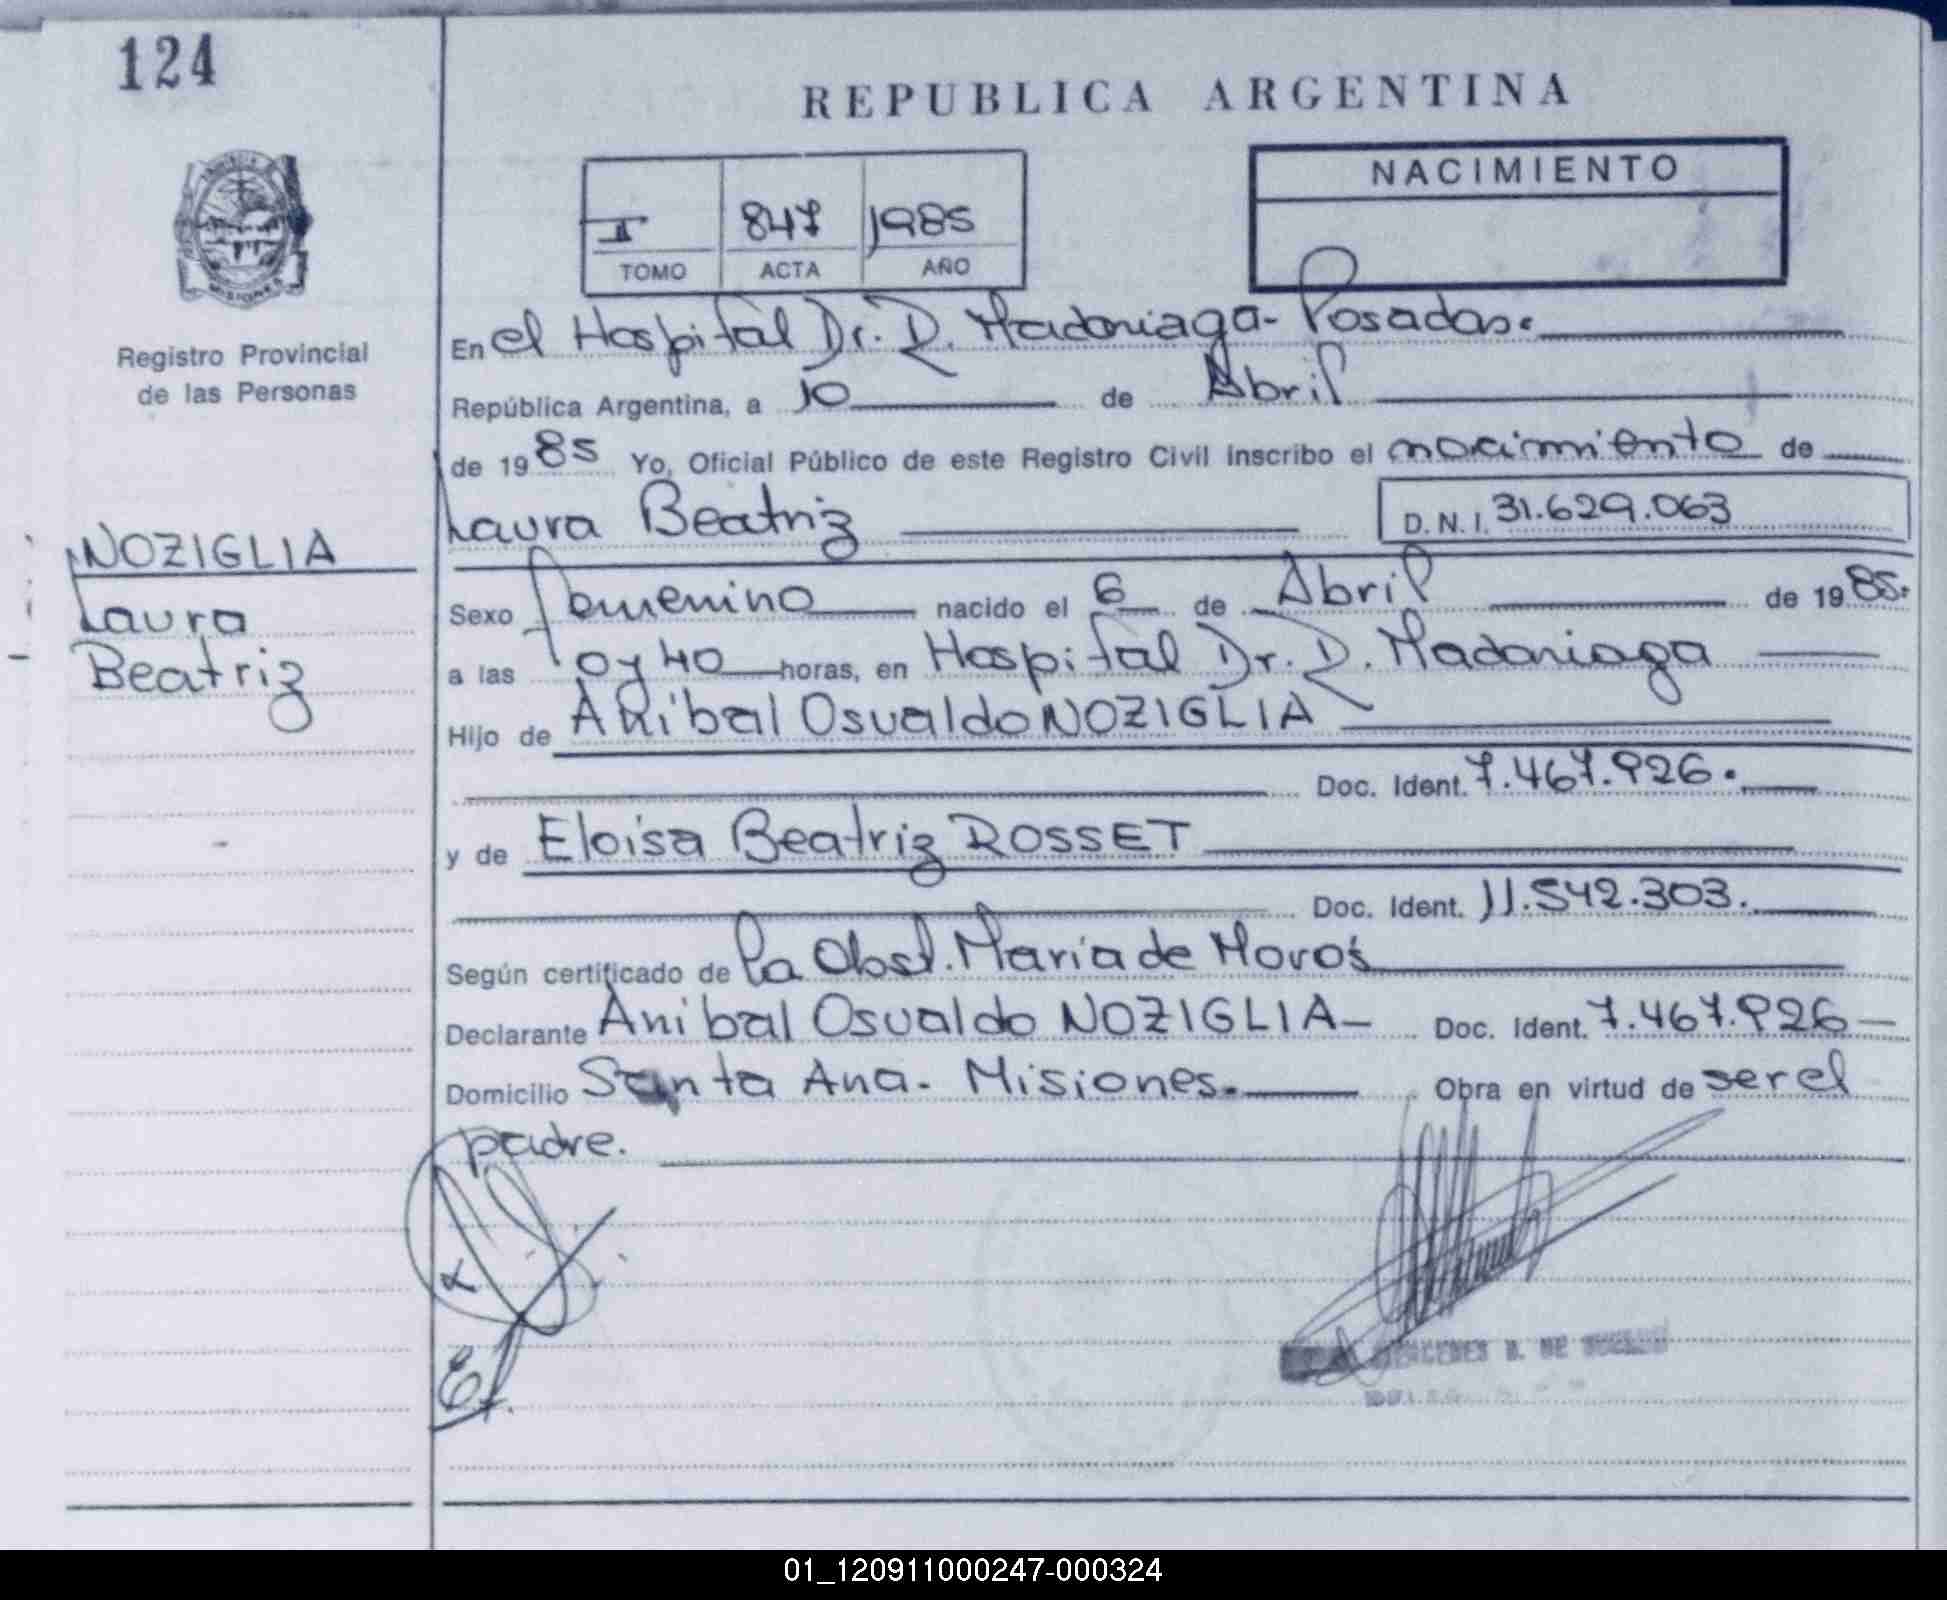 124
REPUBLICA ARGENTINA
NACIMIENTO
I 847 1985
TOMO ACTA AÑO
MISIONES
Registro Provincial
de las Personas
En el Hospital Dr. R. Madariaga - Posadas.
República Argentina, a 10 de Abril
de 1985 Yo, Oficial Público de este Registro Civil inscribo el nacimiento de
Laura Beatriz D.N.I. 31.629.063
NOZIGLIA
Laura
Beatriz
Sexo femenino nacido el 6 de Abril de 1985.
a las 0 y 40 horas, en Hospital Dr. R. Madariaga
Hijo de Anibal Osvaldo NOZIGLIA
Doc. Ident. 7.467.926.
y de Eloisa Beatriz ROSSET
Doc. Ident. 11.542.303.
Según certificado de la Obst. Maria de
Declarante Anibal Osvaldo NOZIGLIA - Doc. Ident. 7.467.926 -
Domicilio Santa Ana - Misiones. Obra en virtud de ser el
padre.
DE
01_120911000247-000324